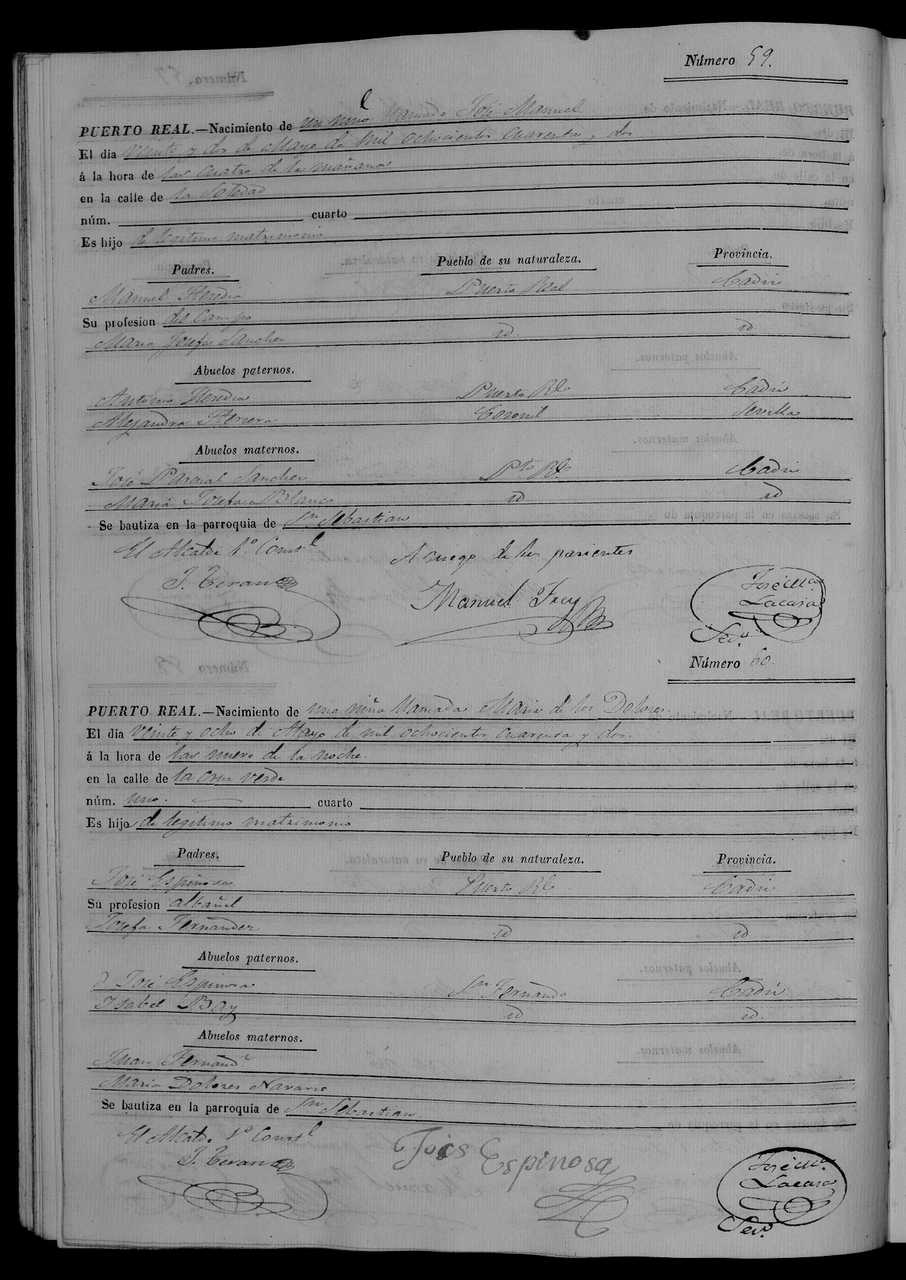 Número 59.
PUERTO REAL.—Nacimiento de un niño llamado José Manuel
El dia veinte y dos de Mayo de mil ochocientos cuarenta y dos
á la hora de las cuatro de la mañana
en la calle de la Soledad
núm. cuarto
Es hijo de legitimo matrimonio
Padres. Pueblo de su naturaleza. Provincia.
Manuel Heredia Puerto Real Cadiz
Su profesion del Campo
Maria Josefa Sanchez id id
Abuelos paternos.
Antonio Heredia Puerto Rl. Cadiz
Alejandra Herrera Coronil Sevilla
Abuelos maternos.
José Pascual Sanchez Pto. Rl. Cadiz
Maria Josefa Blanco id id
Se bautiza en la parroquia de Sn. Sebastian
El Alcalde 1º Consl.
A ruego de los parientes
J. Teran
Manuel
José Ma.
Lacasa
Seco.
Número 60.
PUERTO REAL.—Nacimiento de una niña llamada Maria de los Dolores
El dia veinte y ocho de Mayo de mil ochocientos cuarenta y dos
á la hora de las nueve de la noche
en la calle de la cruz verde
núm. uno. cuarto
Es hijo de legitimo matrimonio
Padres. Pueblo de su naturaleza. Provincia.
José Espinosa Puerto Rl. Cadiz
Su profesion albañil
Josefa Fernandez id id
Abuelos paternos.
José Espinosa Sn. Fernando Cadiz
Ysabel Bay id id.
Abuelos maternos.
Juan Fernandz.
Maria Dolores Navarro
Se bautiza en la parroquia de Sn. Sebastian
El Alcalde 1º Consl.
J. Teran
José Espinosa
José Ma.
Lacasa
Seco.